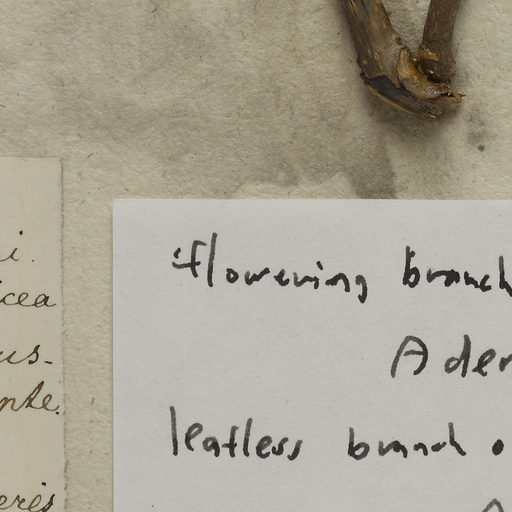 i.
icea
us-
nte.
eris
flowering branch
Aden
leafless branch o